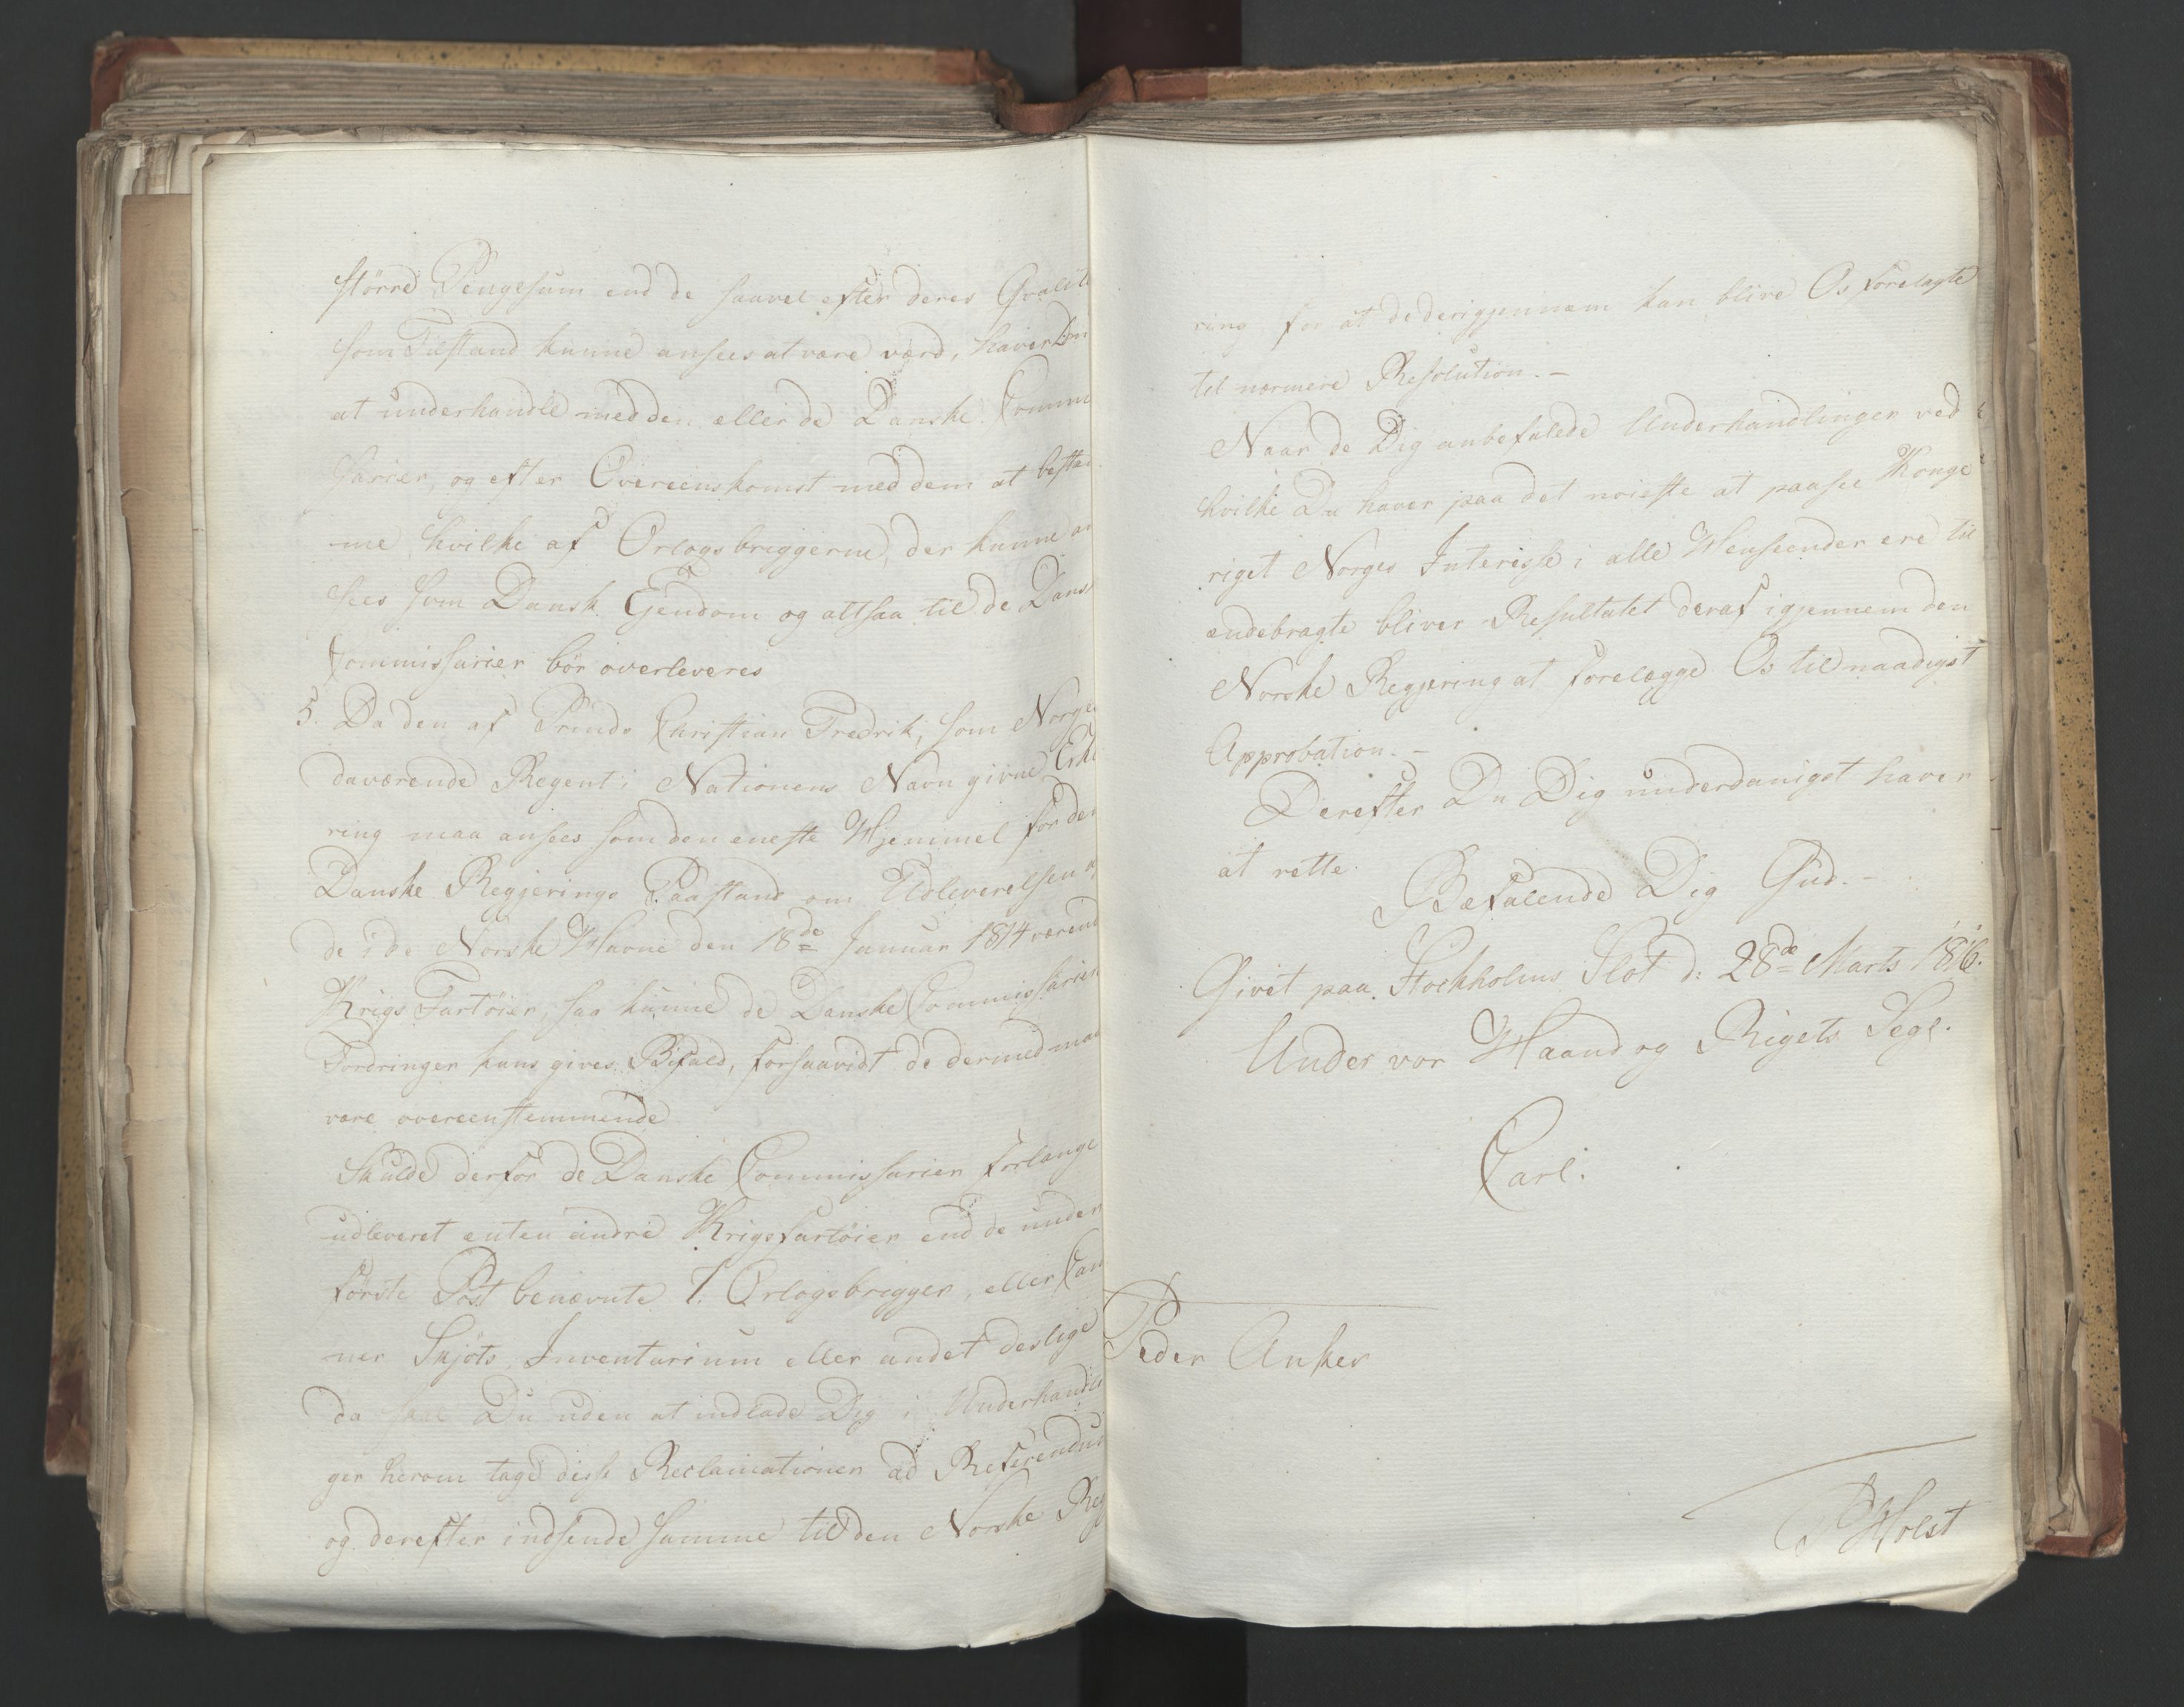 större Pengesum end de saavel efter deres Qvalite
som Tilstand kunne ansees at være værd, haver Du
at underhandle med den eller de Danske Commis
sarier, og efter Overeenskomst med dem at bestem
me hvilke af Orlogsbriggerne, der kunne an
sees som Dansk Ejendom og altsaa til de Dansk
Commissarier bör overleveres
5. Da den af Prinds Christian Fredrik, som Norges
daværende Regent i Nationens Navn givne Erkl
ring maa ansees som den eneste Hjemmel for den
Danske Regjerings Paastand om Udleverelsen af
de i de Norske Havne den 18de Januar 1814 værend
Krigs Fartöier, saa kunne de Danske Commissarier
Fordringer kuns gives Bifald, forsaavidt de dermed maa
være overeenstemmende
Skulde derfor de Danske Commissarier forlange
udleveret enten andre Krigsfartöier end de under
förste Post benævnte 7. Orlogsbrigger, eller Can
ner Skjöts, Inventarium eller andet deslige
da skal Du uden at indlade Dig i Underhandli
ger herom tage disse Reclamationer ad Referendum
og derefter indsende samme til den Norske Reg
ring, for at de derigjennem kan blive Os forelagte
til nærmere Resolution. -
Naar de Dig anbefalede Underhandlinger ved
hvilke Du haver paa det nöieste at paasee Konge
riget Norges Interesse i alle Henseender ere til
endebragte bliver Resultatet deraf igjennem den
Norske Regjering at forelægge Os til naadigst
Approbation. -
Derefter Du Dig underdanigst haver
at rette.
Befalende Dig Gud. -
Givet paa Stockholms Slot d: 28de Marts 1816.
Under vor Haand og Rigets Segl.
Carl.
Peder Anker
P Holst